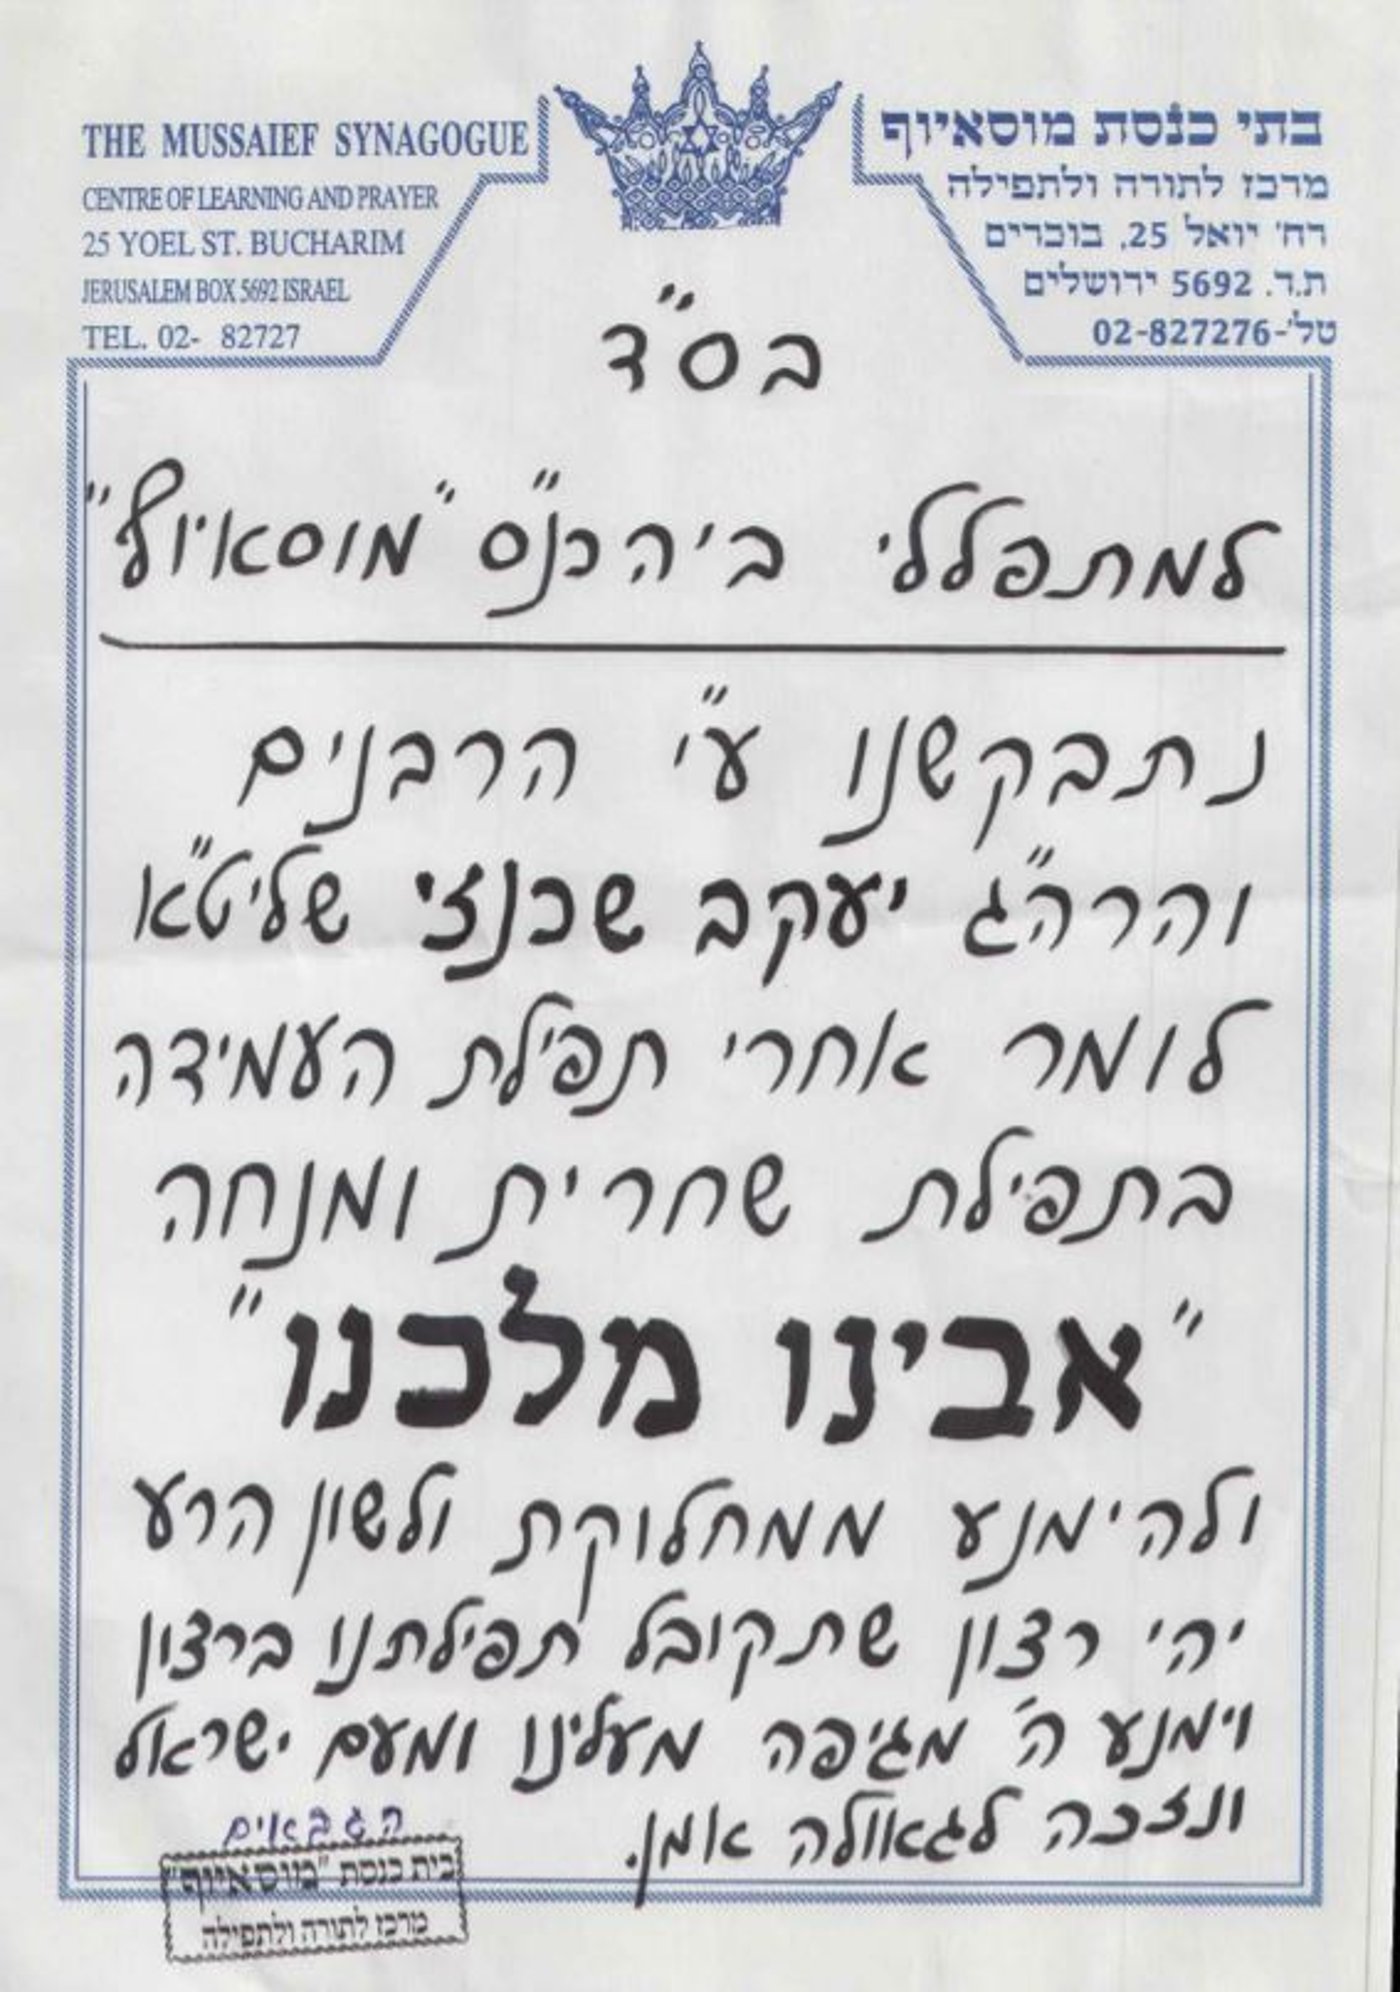 THE MUSSAIEF SYNAGOGUE
CENTRE OF LEARNING AND PRAYER
25 YOEL ST. BUCHARIM
JERUSALEM BOX 5692 ISRAEL
TEL. 02- 82727
בתי כנסת מוסאיוף
מרכז לתורה ולתפילה
רח' יואל 25, בוכרים
ת.ד. 5692 ירושלים
טל'-02-827276
בס"ד
למתפללי ביהכנ"ס "מוסאיוף"
נתבקשנו ע"י הרבנים
והרה"ג יעקב שכנזי שליט"א
לומר אחרי תפילת העמידה
בתפילת שחרית ומנחה
"אבינו מלכנו"
ולהימנע ממחלוקת ולשון הרע
יהי רצון שתקובל תפילתנו ברצון
וימנע ה' מגיפה מעלינו ומעם ישראל
ונזכה לגאולה אמן.
הגבאים
בית כנסת "מוסאיוף"
מרכז לתורה ולתפילה